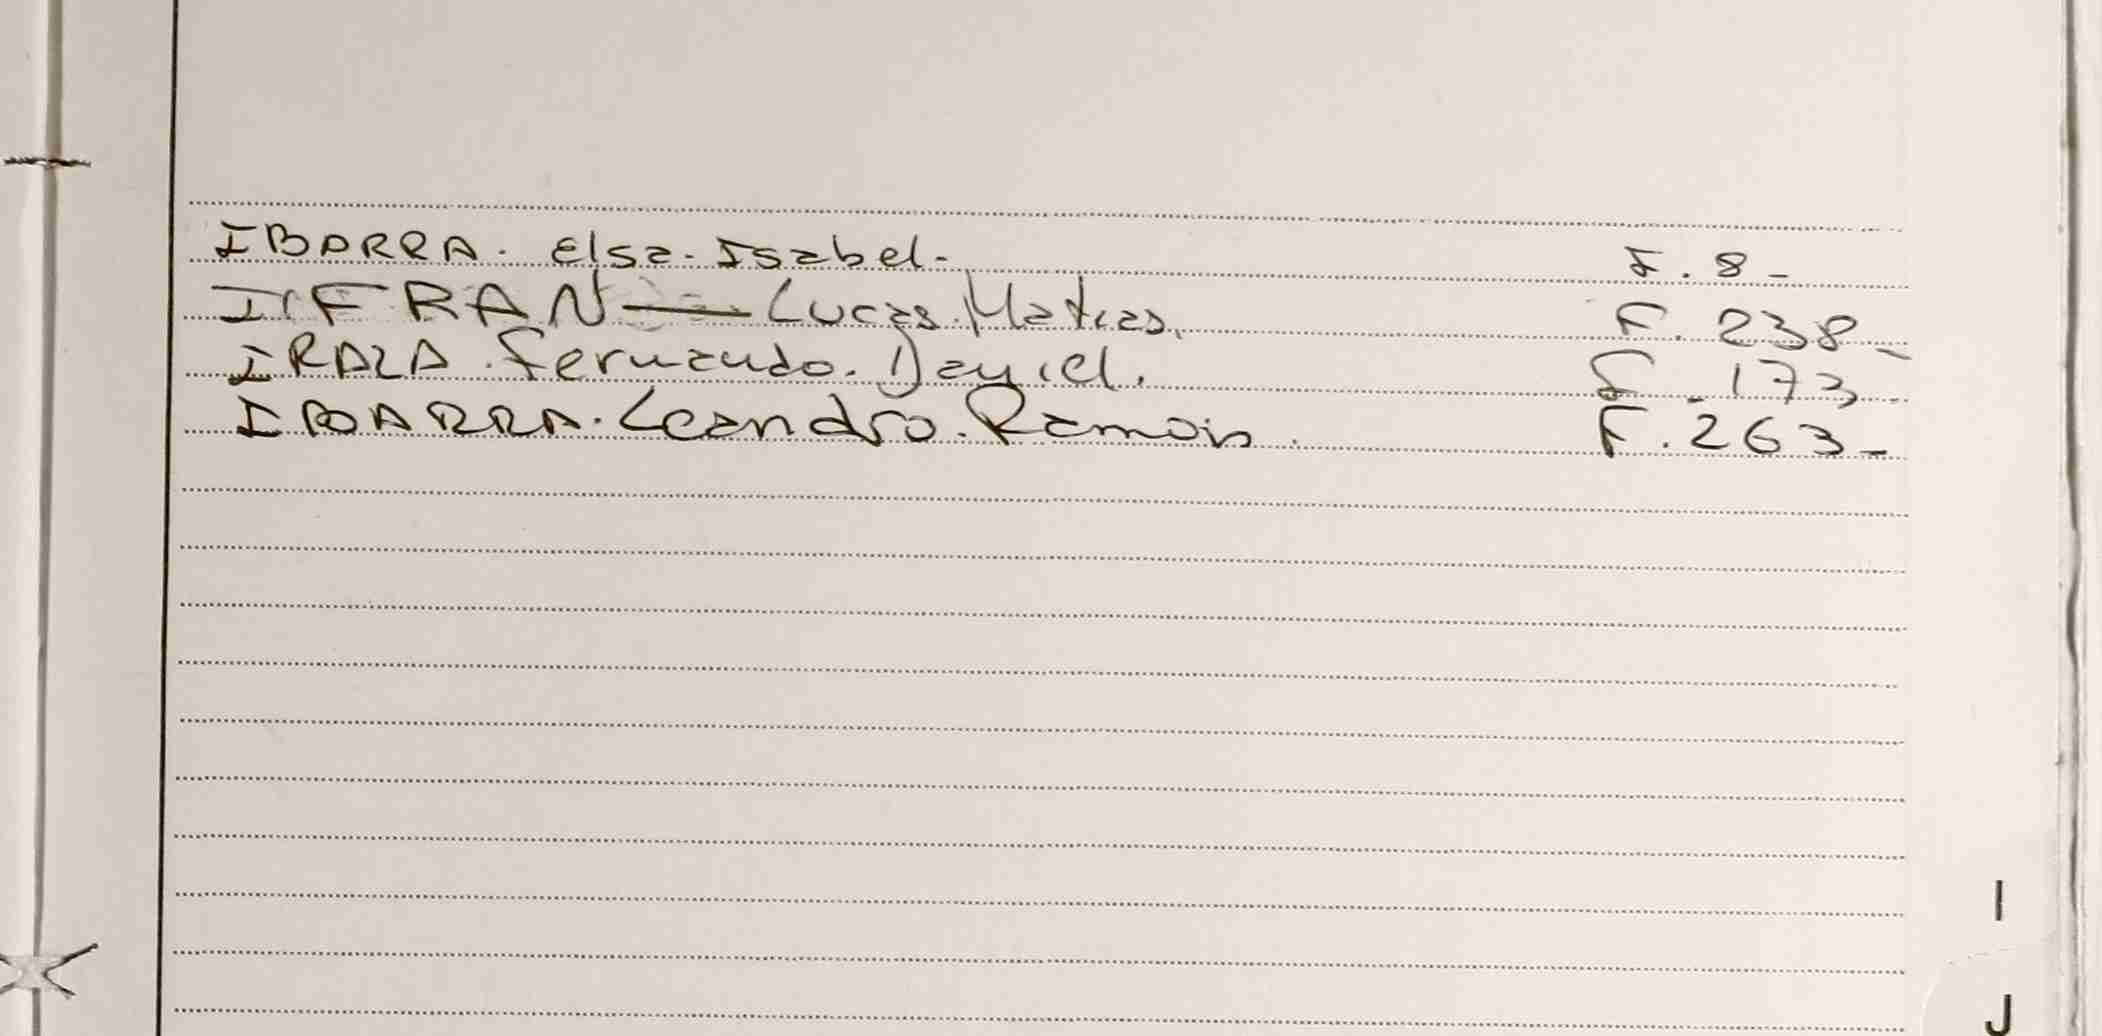 IBARRA. Elsa. Isabel. F. 8-
IFRAN — Lucas. Matias. F. 238-
IRALA. Fernando. Daniel. F. 173-
IBARRA. Leandro. Ramón. F. 263-
I
J